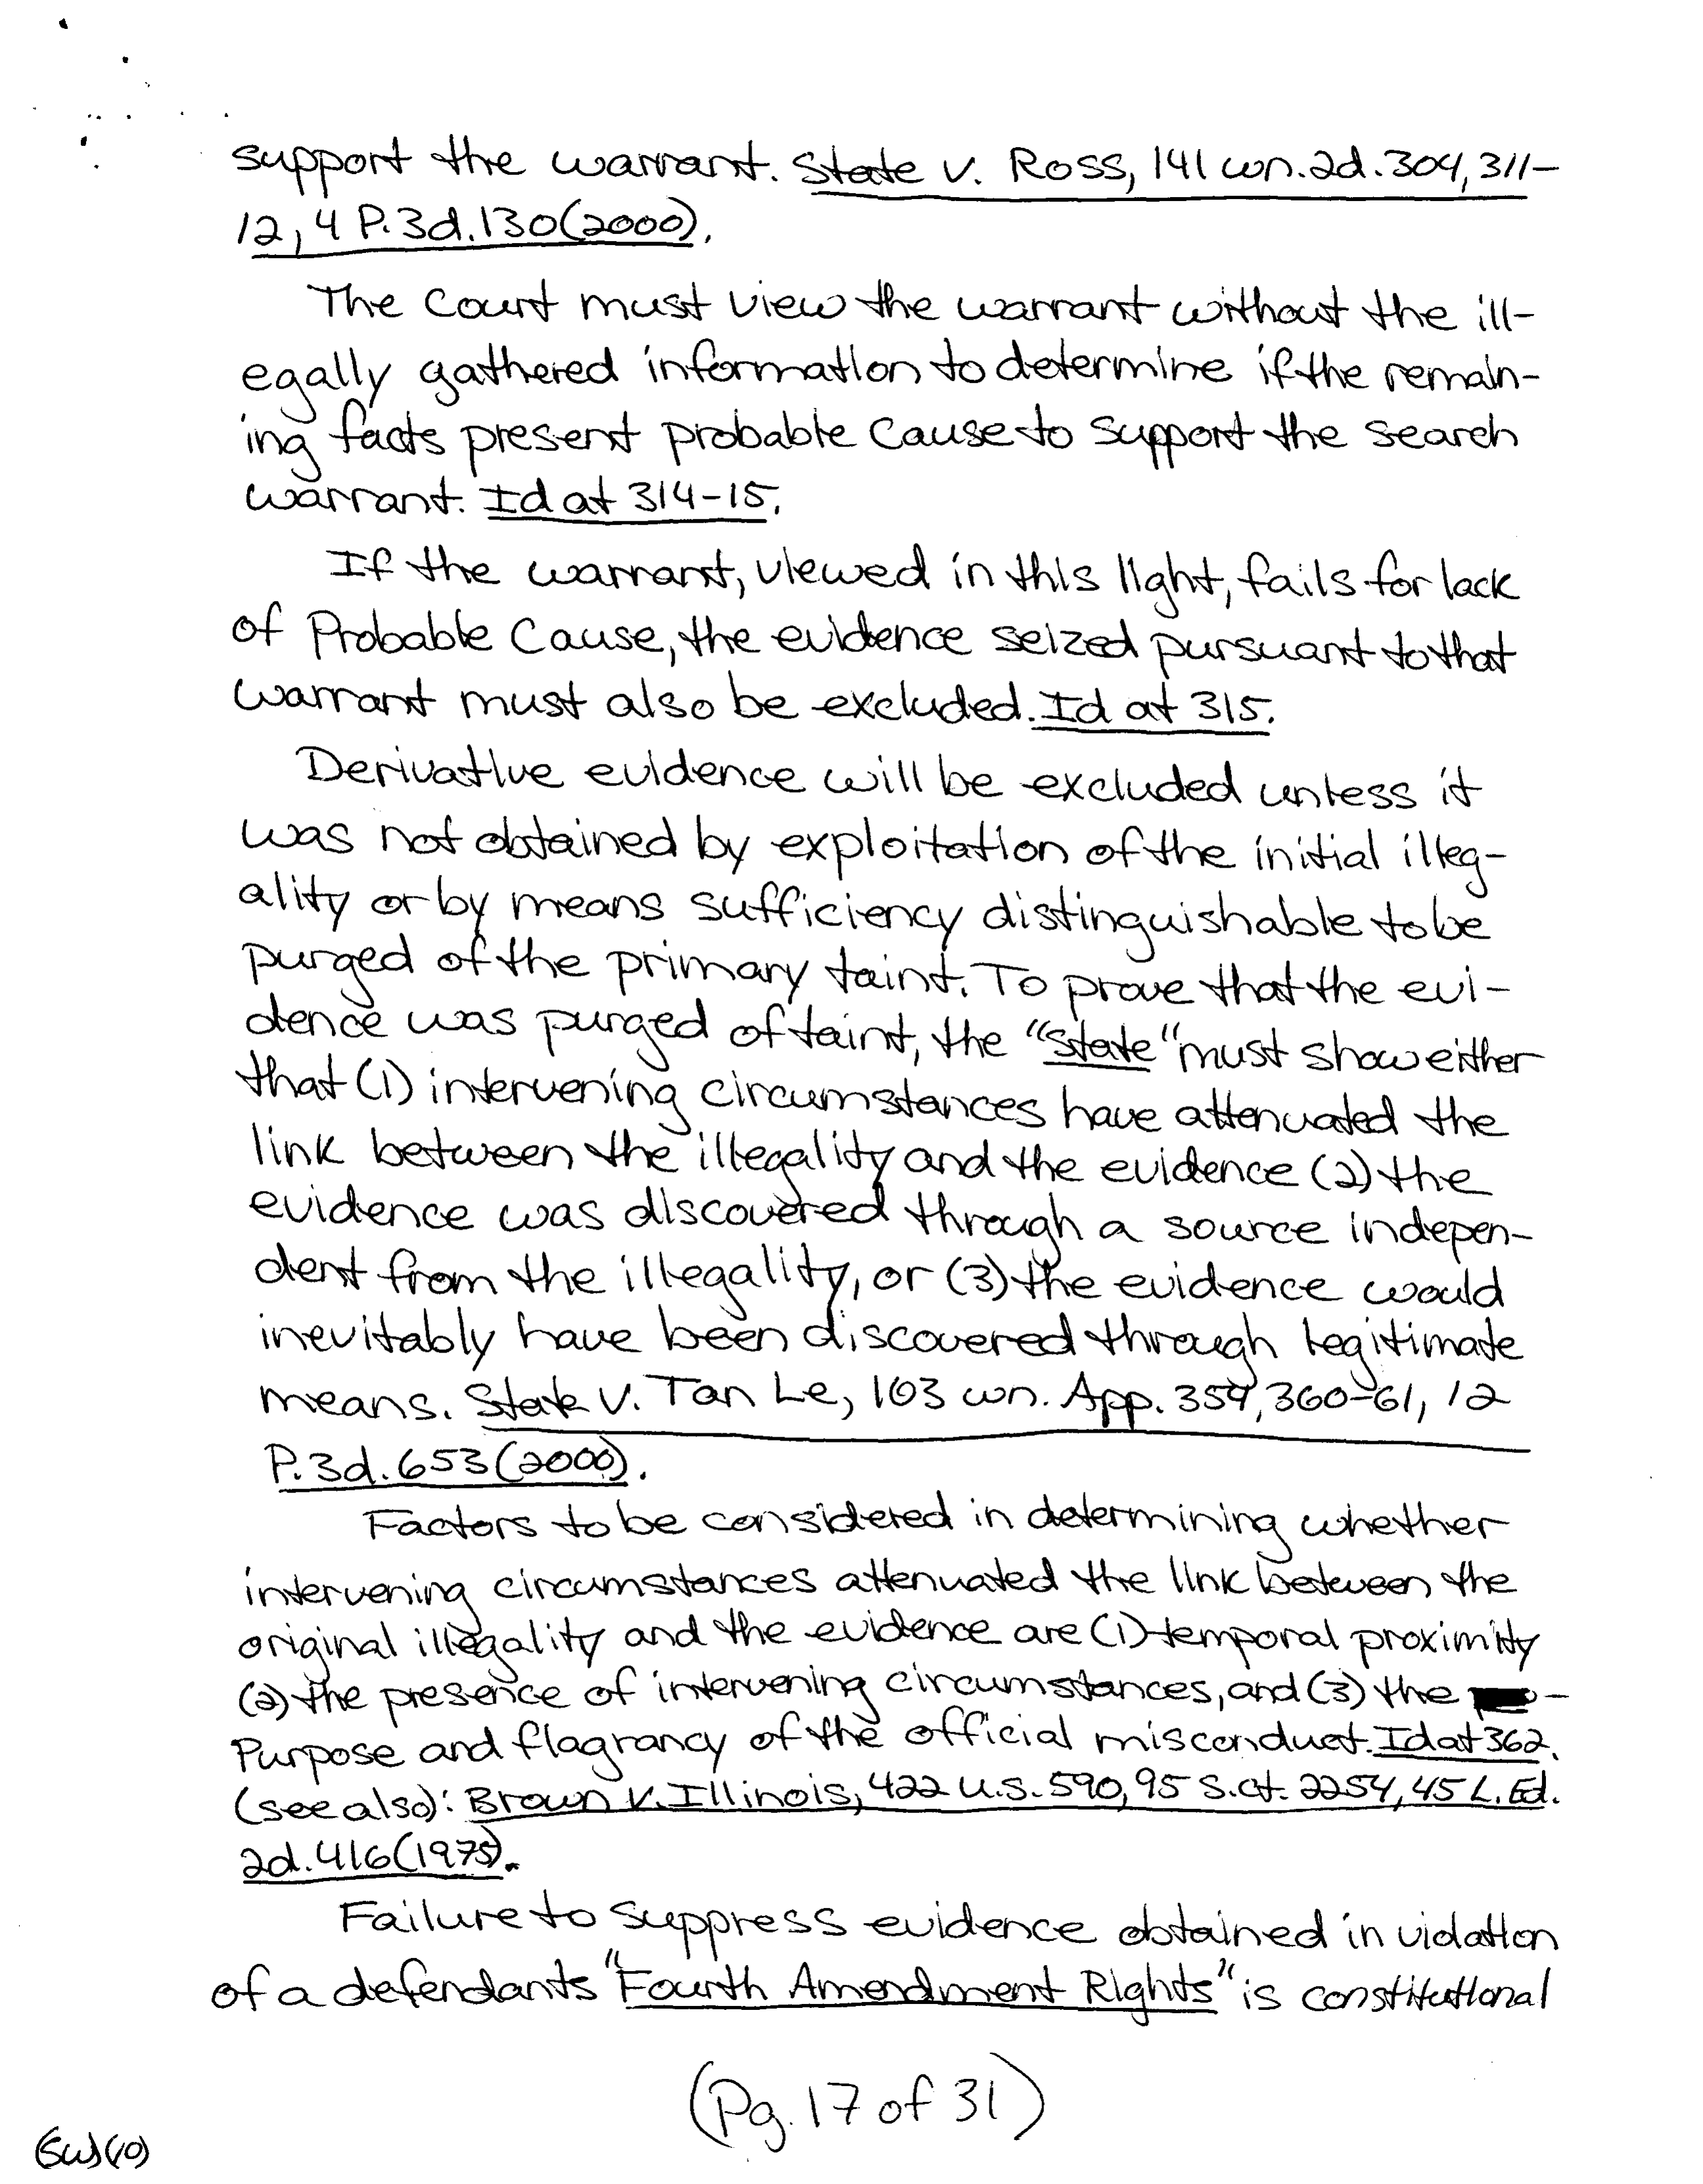 support the warrant. State v. Ross, 141 wn.2d.304,311-
12, 4 P.3d.130(2000).
The Court must view the warrant without the ill-
egally gathered information to determine if the remain-
ing facts present probable cause to support the search
warrant. Id at 314-15.
If the warrant, viewed in this light, fails for lack
of Probable Cause, the evidence seized pursuant to that
warrant must also be excluded. Id at 315.
Derivative evidence will be excluded unless it
was not obtained by exploitation of the initial illeg-
ality or by means sufficiency distinguishable to be
purged of the primary taint. To prove that the evi-
dence was purged of taint, the "State" must show either
that (1) intervening circumstances have attenuated the
link between the illegality and the evidence (2) the
evidence was discovered through a source indepen-
dent from the illegality, or (3) the evidence would
inevitably have been discovered through legitimate
means. State v. Tan Le, 103 wn. App. 359, 360-61, 12
P.3d.653(2000).
Factors to be considered in determining whether
intervening circumstances attenuated the link between the
original illegality and the evidence are (1) temporal proximity
(2) the presence of intervening circumstances, and (3) the -
Purpose and flagrancy of the official misconduct. Id at 362.
(see also): Brown v. Illinois, 422 U.S. 590, 95 S.ct. 2254, 45 L.Ed.
2d.416(1975).
Failure to suppress evidence obtained in violation
of a defendants "Fourth Amendment Rights" is constitutional
(Pg. 17 of 31)